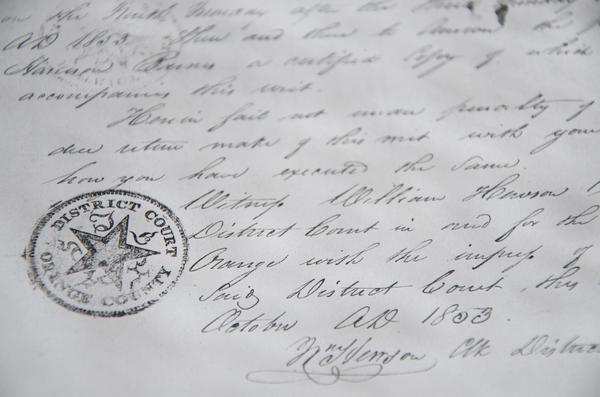 on the Ninth Monday after the
AD 1853 Then and there to answer the
Harrison a certified Copy of which
accompanies this writ.
Herein fail not under penalty of
due return make of this writ with your
how you have executed the same.
Witness William Hewson
District Court in and for the
Orange with the impress of
Said District Court, this
October AD 1853.
Wm Hewson Clk District
DISTRICT COURT
ORANGE COUNTY
TEXAS